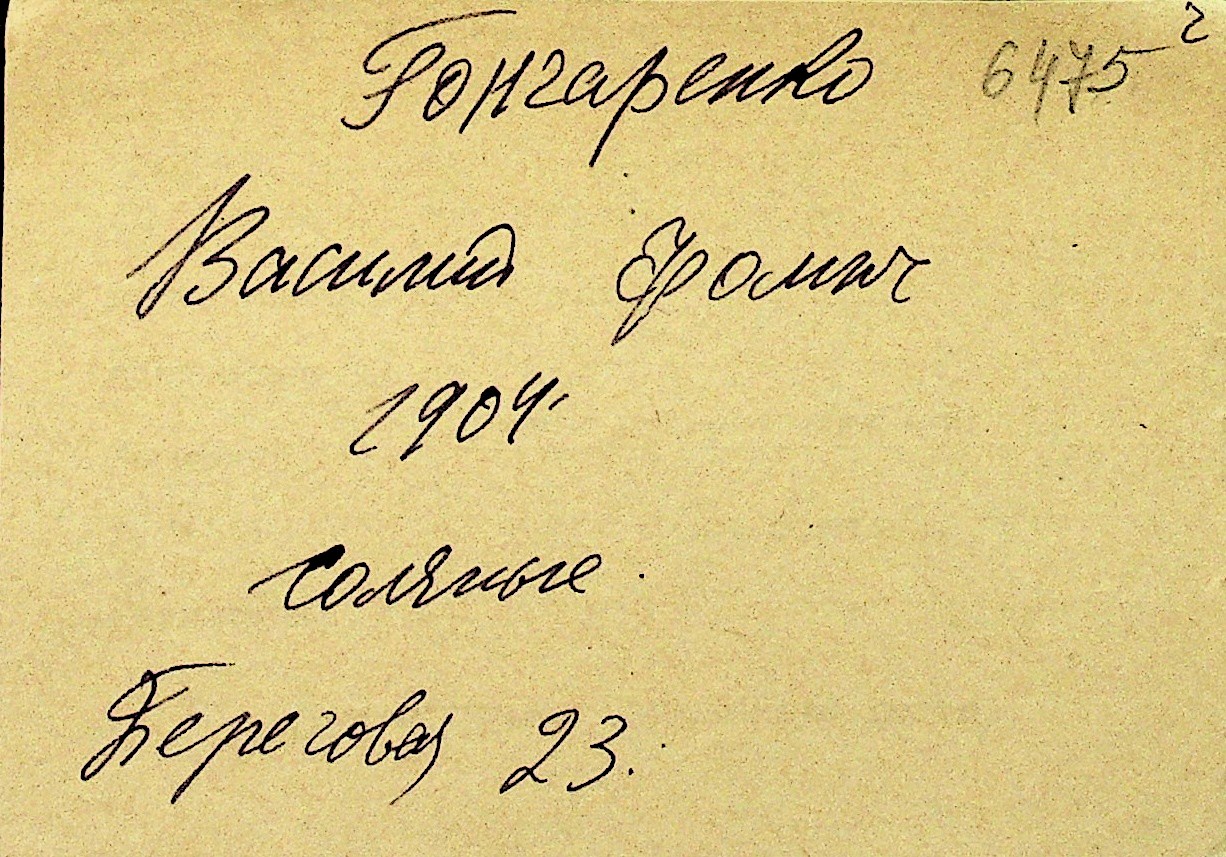 Гончаренко 6475 г
Василий Фомич
1904.
Соляные.
Береговая 23.